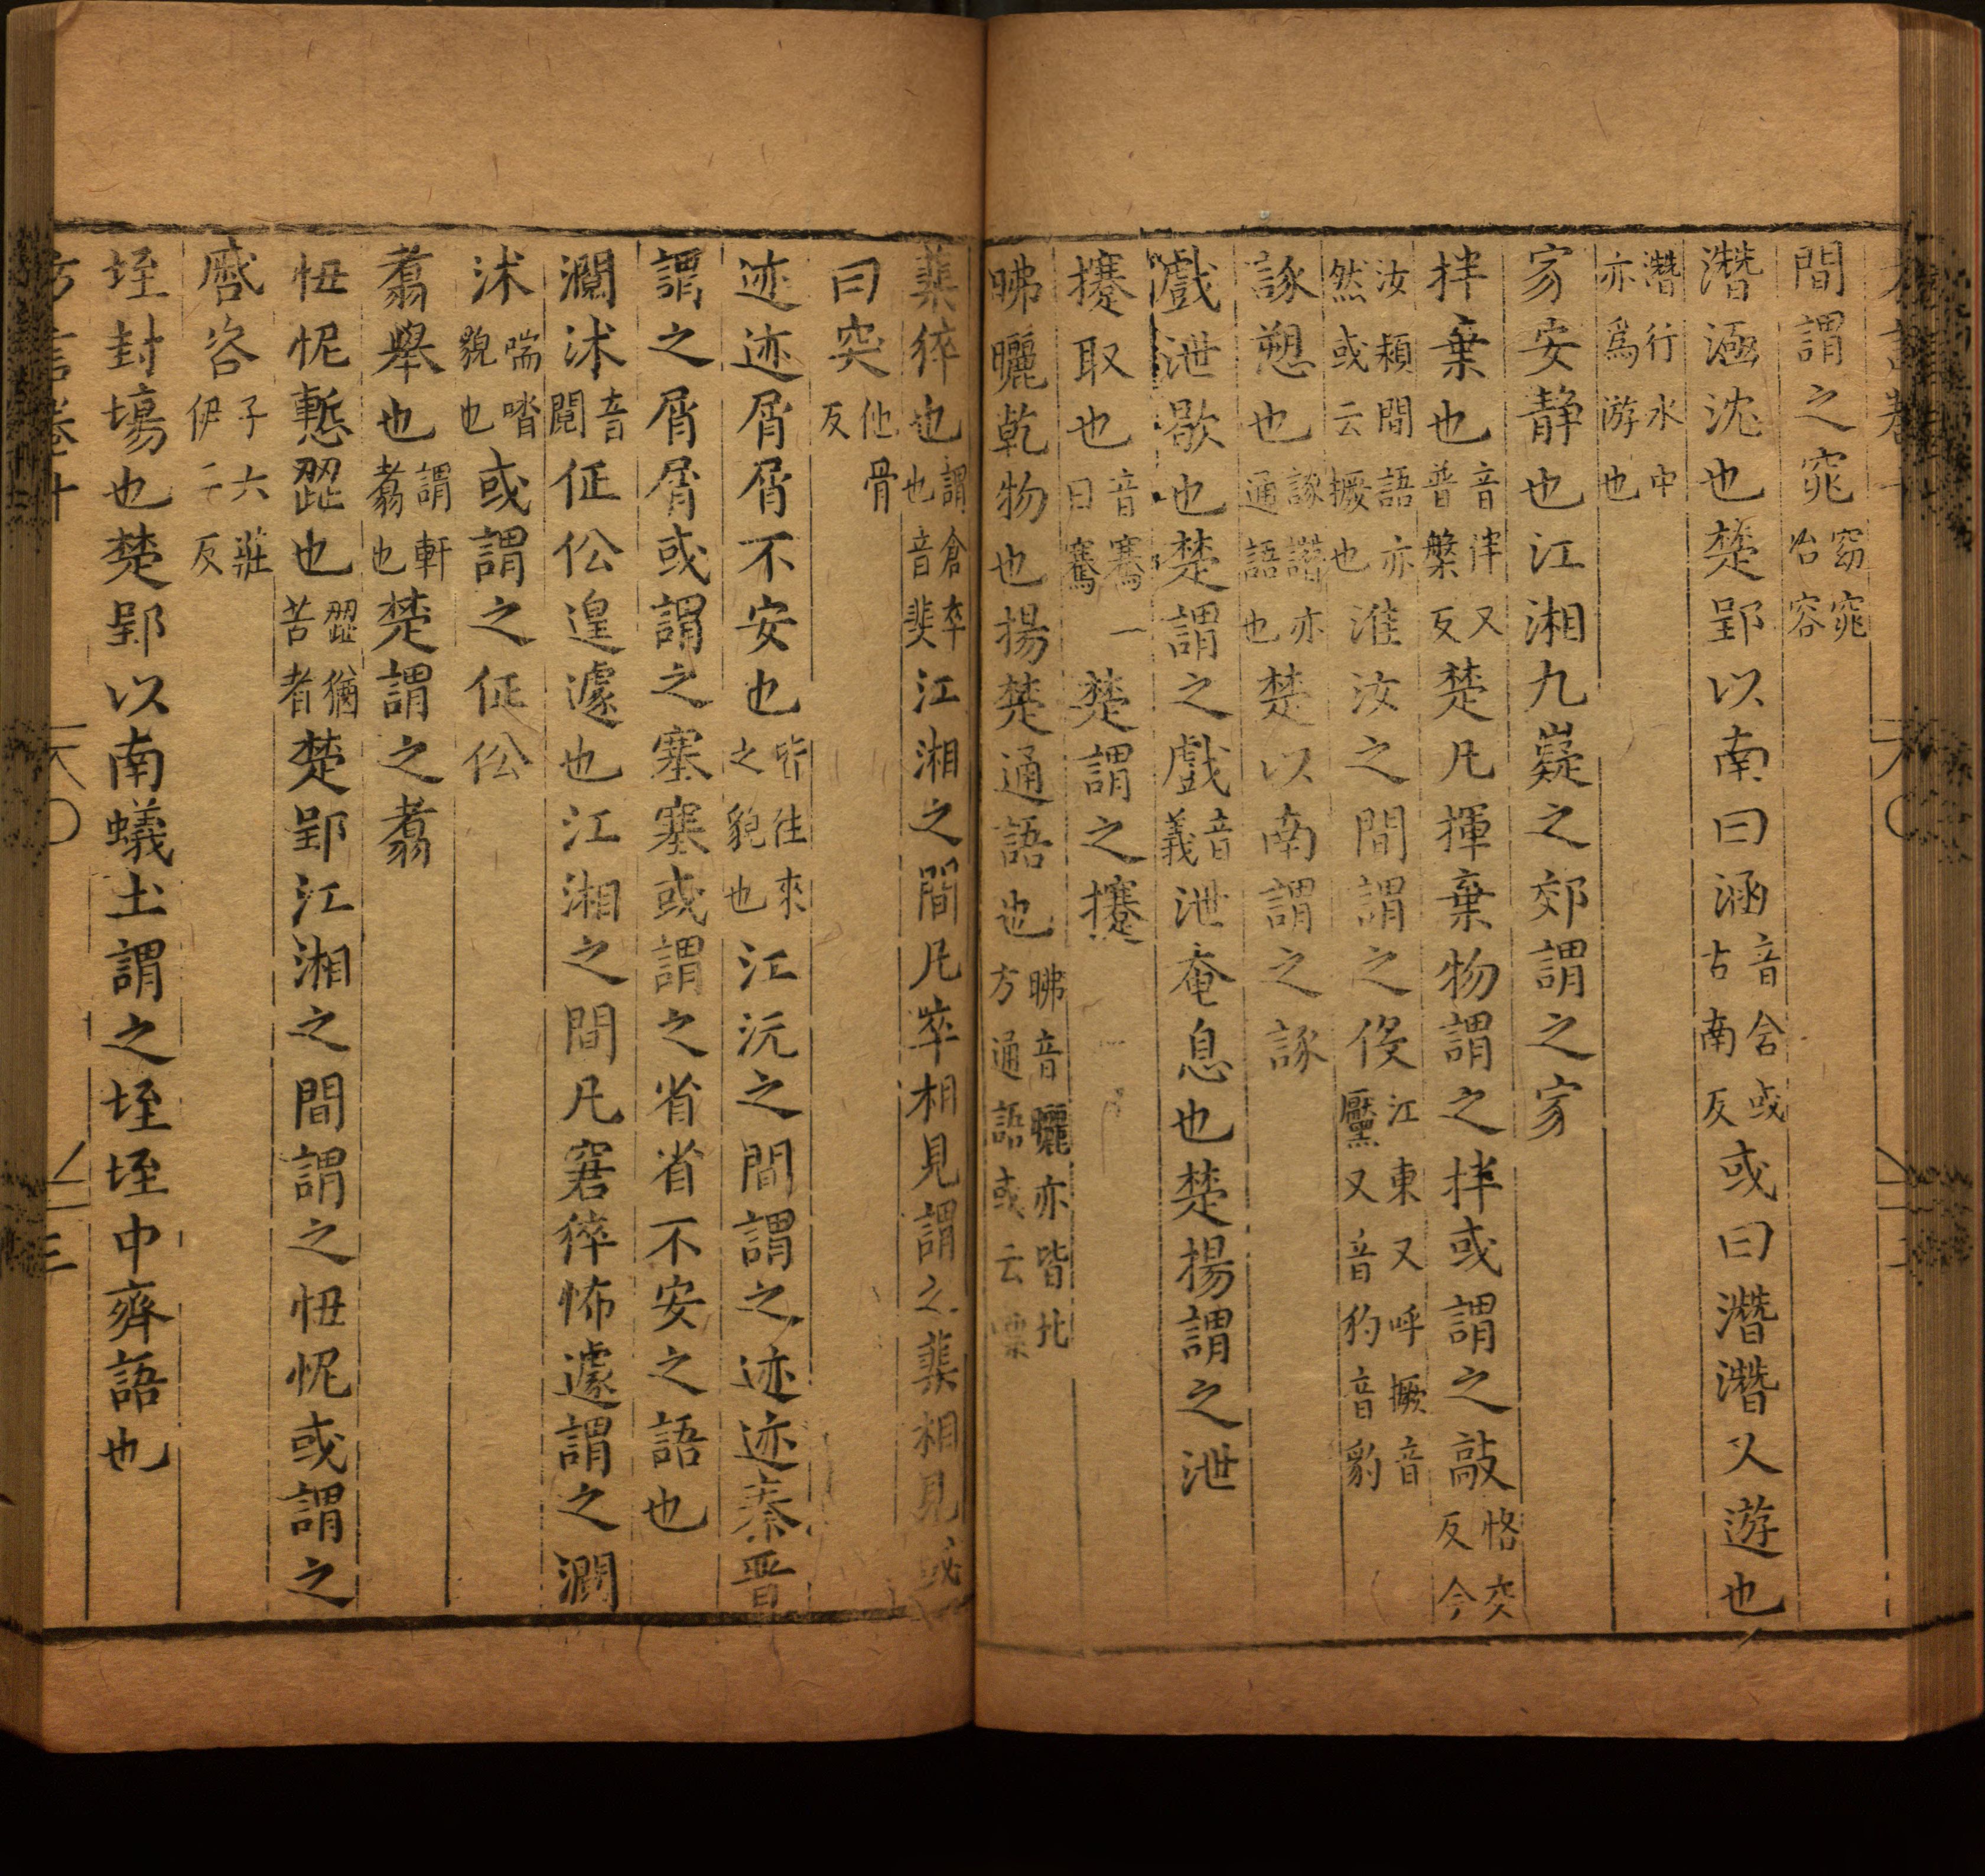 間謂之窕窈窕冶容
潛涵沈也楚郢以南曰涵音含或古南反或曰潛潛又遊也
潛行水中亦爲游也
家安靜也江湘九嶷之郊謂之家
拌棄也音伴又普槃反楚凡揮棄物謂之拌或謂之敲恪交反今
汝潁間語亦然或云撅也淮汝之間謂之役江東又呼撅音黶又音豹音豹
諑愬也諑譖亦通語也楚以南謂之諑
戲泄歇也楚謂之戲音義泄奄息也楚揚謂之泄
攓取也音騫一曰騫楚謂之攓
昲曬乾物也揚楚通語也昲音曬亦皆北方通語或云
䒰猝也謂倉卒也音斐江湘之間凡卒相見謂之䒰相見或
曰突他骨反
迹迹屑屑不安也皆往來之貌也江沅之間謂之迹迹秦晉
謂之屑屑或謂之塞塞或謂之省省不安之語也
瀾沭音閻佂伀遑遽也江湘之間凡窘猝怖遽謂之澗
沭喘喈貌也或謂之佂伀
翥舉也謂軒翥也楚謂之翥
忸怩慙歰也歰猶苦者楚郢江湘之間謂之忸怩或謂之
㦗咨子六莊伊二反
垤封場也楚郢以南蟻土謂之垤垤中齊語也
方言卷十 三